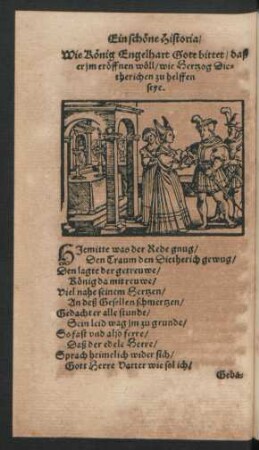 Ein schöne Historia/
Wie König Engelhart Gott bittet/ daß
er jm eröffnen wöll/ wie Hertzog Die-
therichen zu helffen
seye.
HJemitte was der Rede gnug/
Den Traum den Dietherich gewug/
Den sagte der getreuwe/
König da mit reuwe/
Viel nahe seinem Hertzen/
An deß Gesellen schmertzen/
Gedacht er alle stunde/
Sein leid wag jm zu grunde/
So fast vnd also ferre/
Daß der edele Herre/
Sprach heimelich wider sich/
Gott Herre Vatter wie sol ich/
Geba-